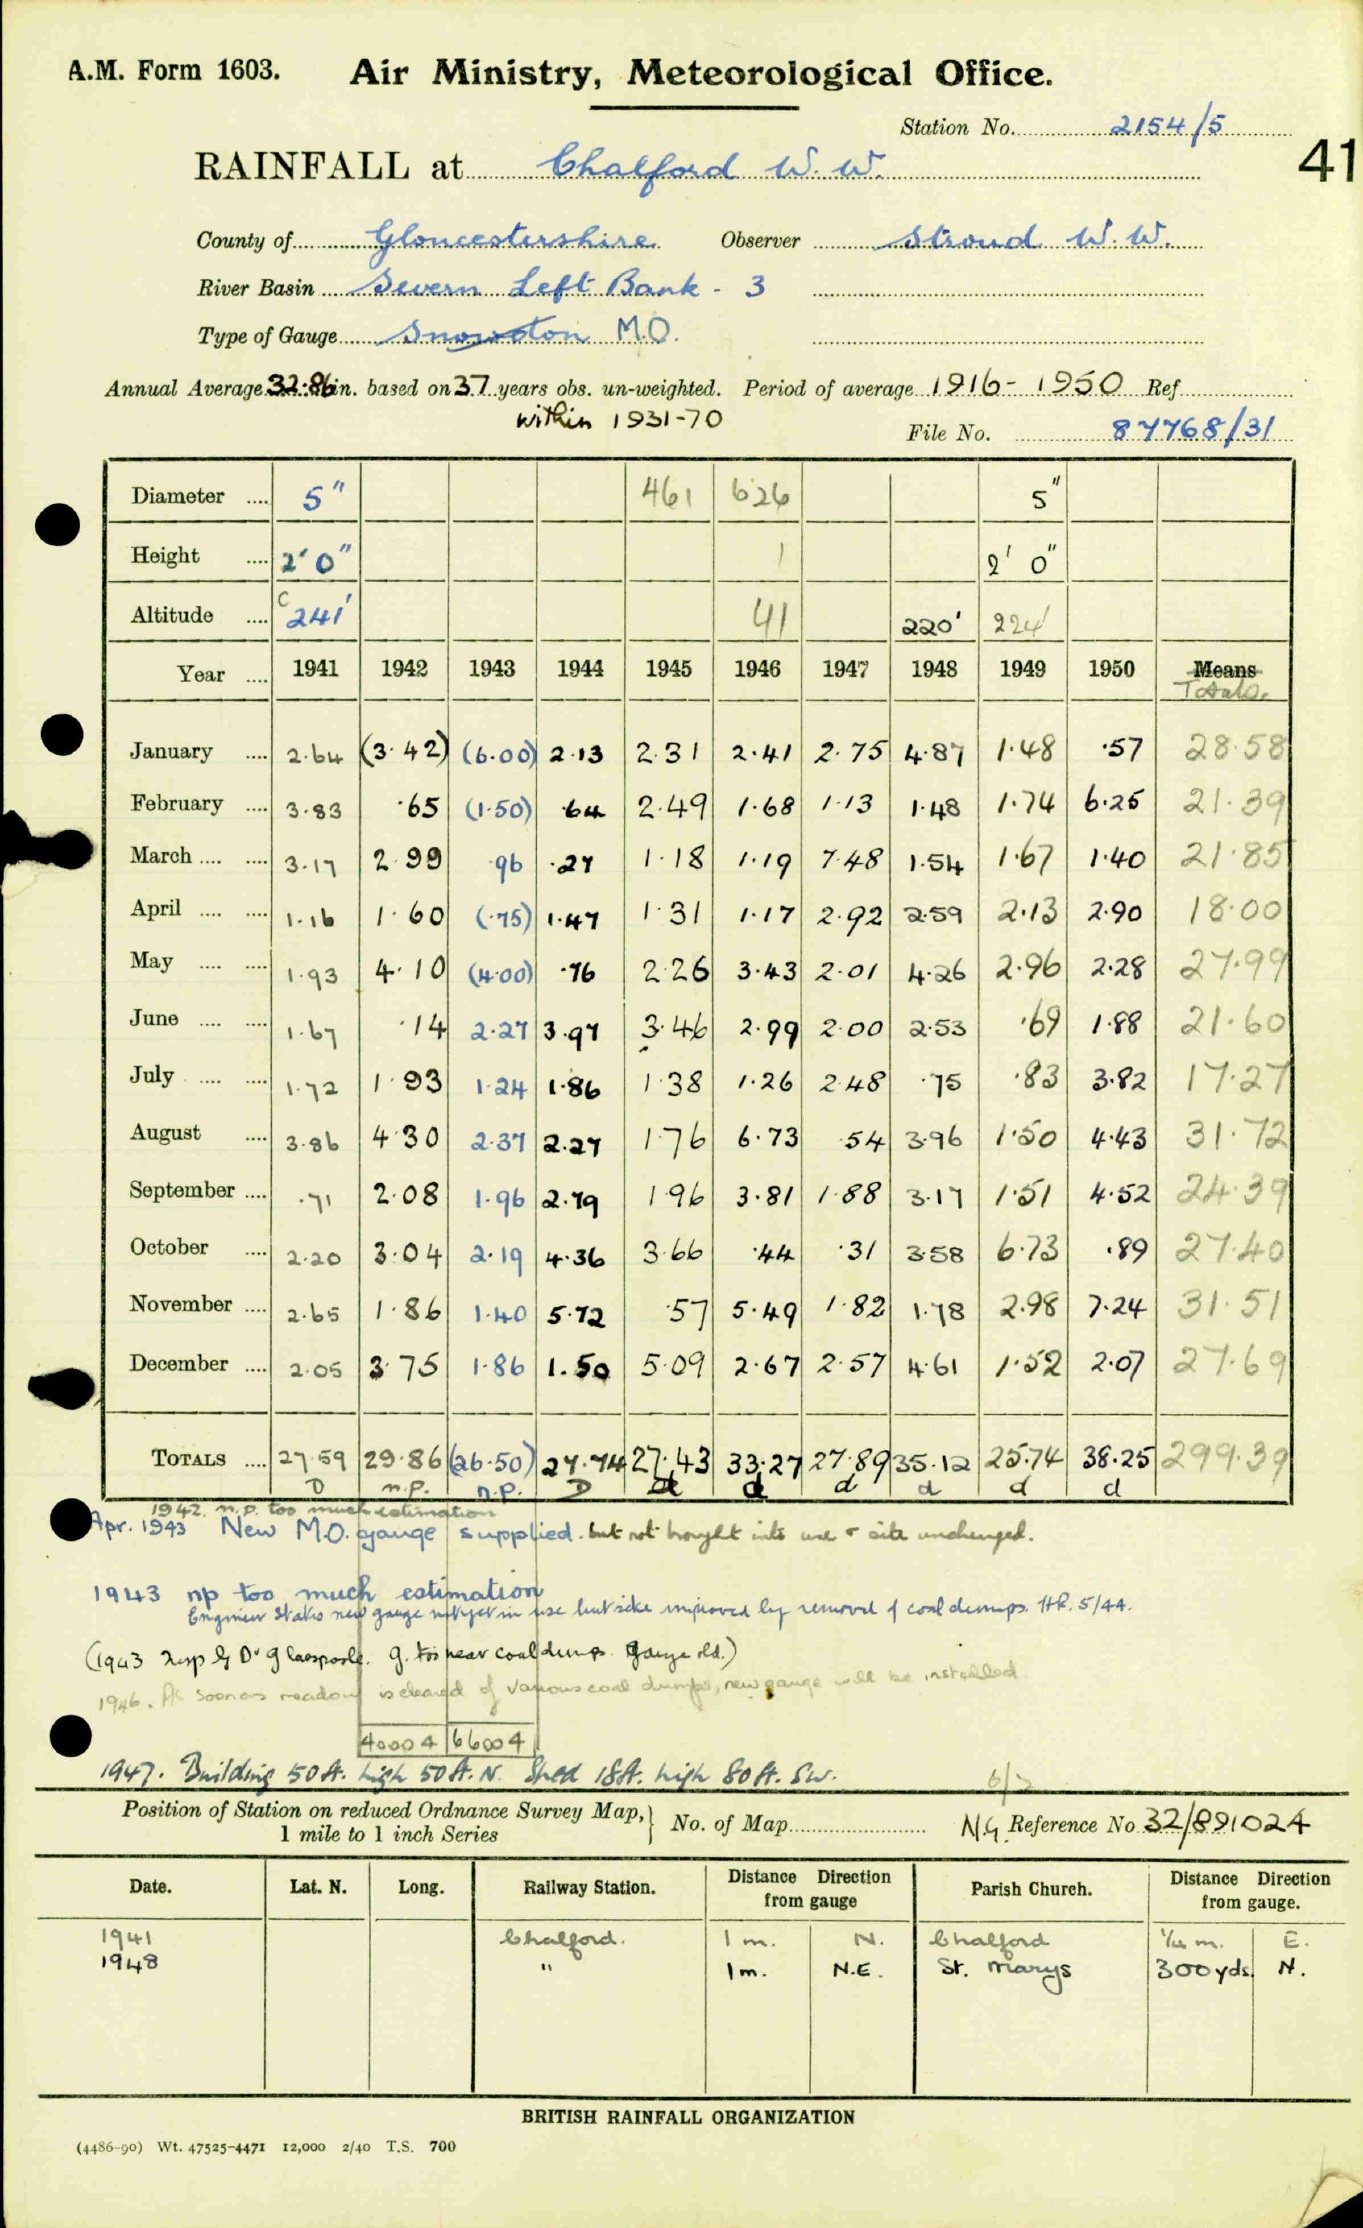 A.M. Form 1603. Air Ministry, Meteorological Office.
Station No. 2154/5
41
RAINFALL at Chalford W. W.
County of Gloucestershire Observer Stroud W. W.
River Basin Severn Left Bank - 3
Type of Gauge Snowdon M.O.
Annual Average 32.86 in. based on 37 years obs. un-weighted. Period of average 1916-1950 Ref.
within 1931-70
File No. 87768/31
Diameter .... 5" 461 626 5"
Height .... 2' 0" 1 2' 0"
Altitude .... C 241' 41 220' 224'
Year .... 1941 1942 1943 1944 1945 1946 1947 1948 1949 1950 Means
Totals.
January .... 2.64 (3.42) (6.00) 2.13 2.31 2.41 2.75 4.87 1.48 .57 28.58
February .... 3.83 .65 (1.50) .64 2.49 1.68 1.13 1.48 1.74 6.25 21.39
March .... .... 3.17 2.99 .96 .27 1.18 1.19 7.48 1.54 1.67 1.40 21.85
April .... .... 1.16 1.60 (.75) 1.47 1.31 1.17 2.92 2.59 2.13 2.90 18.00
May .... .... 1.93 4.10 (4.00) .76 2.26 3.43 2.01 4.26 2.96 2.28 27.99
June .... .... 1.67 .14 2.27 3.97 3.46 2.99 2.00 2.53 .69 1.88 21.60
July .... .... 1.72 1.93 1.24 1.86 1.38 1.26 2.48 .75 .83 3.82 17.27
August .... 3.86 4.30 2.37 2.27 1.76 6.73 .54 3.96 1.50 4.43 31.72
September .... .71 2.08 1.96 2.79 1.96 3.81 1.88 3.17 1.51 4.52 24.39
October .... 2.20 3.04 2.19 4.36 3.66 .44 .31 3.58 6.73 .89 27.40
November .... 2.65 1.86 1.40 5.72 .57 5.49 1.82 1.78 2.98 7.24 31.51
December .... 2.05 3.75 1.86 1.50 5.09 2.67 2.57 4.61 1.52 2.07 27.69
TOTALS .... 27.59 29.86 (26.50) 27.74 27.43 33.27 27.89 35.12 25.74 38.25 299.39
D n.P. n.P. D d d d d d d
1942 n.p. too much estimation
Apr. 1943 New M.O. gauge supplied. but not brought into use & site unchanged.
1943 np too much estimation
Engineer states new gauge not yet in use but site improved by removal of coal dumps. 5/44.
(1943 by Dr Glasspoole. g. too near coal dumps. Gauge old.)
1946. As soon as meadow is cleared of various coal dumps, new gauge will be installed
40004 66004
1947. Building 50 ft. high 50 ft. N. Shed 18ft. high 80 ft. SW.
Position of Station on reduced Ordnance Survey Map, 1 mile to 1 inch Series } No. of Map N.G. Reference No 32/891024
Date. Lat. N. Long. Railway Station. Distance Direction from gauge Parish Church. Distance Direction from gauge.
1941 Chalford. 1 m. N. Chalford 1/4 m. E.
1948 " 1 m. N.E. St. Marys 300yds. N.
BRITISH RAINFALL ORGANIZATION
(4486-90) Wt. 47525-4471 12,000 2/40 T.S. 700